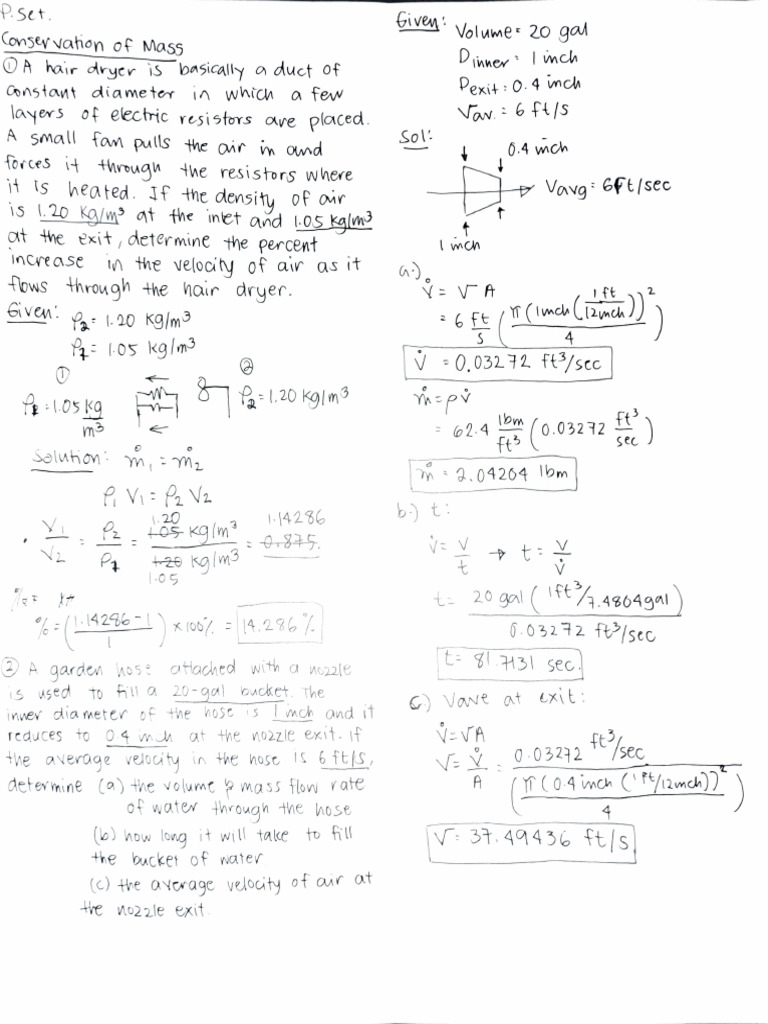 P. Set.
Conservation of Mass
① A hair dryer is basically a duct of
constant diameter in which a few
layers of electric resistors are placed.
A small fan pulls the air in and
forces it through the resistors where
it is heated. If the density of air
is 1.20 kg/m³ at the inlet and 1.05 kg/m³
at the exit, determine the percent
increase in the velocity of air as it
flows through the hair dryer.
Given: ρ2 = 1.20 kg/m³
ρ1 = 1.05 kg/m³
① ②
ρ1 = 1.05 kg/m³ ρ2 = 1.20 kg/m³
Solution: ṁ1 = ṁ2
ρ1 V1 = ρ2 V2
V1/V2 = ρ2/ρ1 = 1.20 1.05 kg/m³ / 1.20 kg/m³ 1.05 = 1.14286 0.875
%=
% = (1.14286 - 1 / 1) × 100% = 14.286 %
② A garden hose attached with a nozzle
is used to fill a 20-gal bucket. The
inner diameter of the hose is 1 inch and it
reduces to 0.4 inch at the nozzle exit. If
the average velocity in the hose is 6 ft/s,
determine (a) the volume & mass flow rate
of water through the hose
(b) how long it will take to fill
the bucket of water
(c) the average velocity of air at
the nozzle exit.
Given: Volume = 20 gal
Dinner: 1 inch
Dexit: 0.4 inch
Vav. = 6 ft/s
Sol:
0.4 inch
Vavg = 6ft/sec
1 inch
a.)
V̇ = VA
= 6 ft/s (π(1inch(1ft/12inch))²/4)
V̇ = 0.03272 ft³/sec
ṁ = ρV̇
= 62.4 lbm/ft³ (0.03272 ft³/sec)
ṁ = 2.04204 lbm
b.) t:
V̇ = V/t → t = V/V̇
t = 20 gal (1ft³/7.4804gal) / 0.03272 ft³/sec
t = 81.7131 sec.
c) Vave at exit:
V̇ = VA
V = V̇/A = 0.03272 ft³/sec / (π(0.4 inch (1ft/12inch))²/4)
V = 37.49436 ft/s